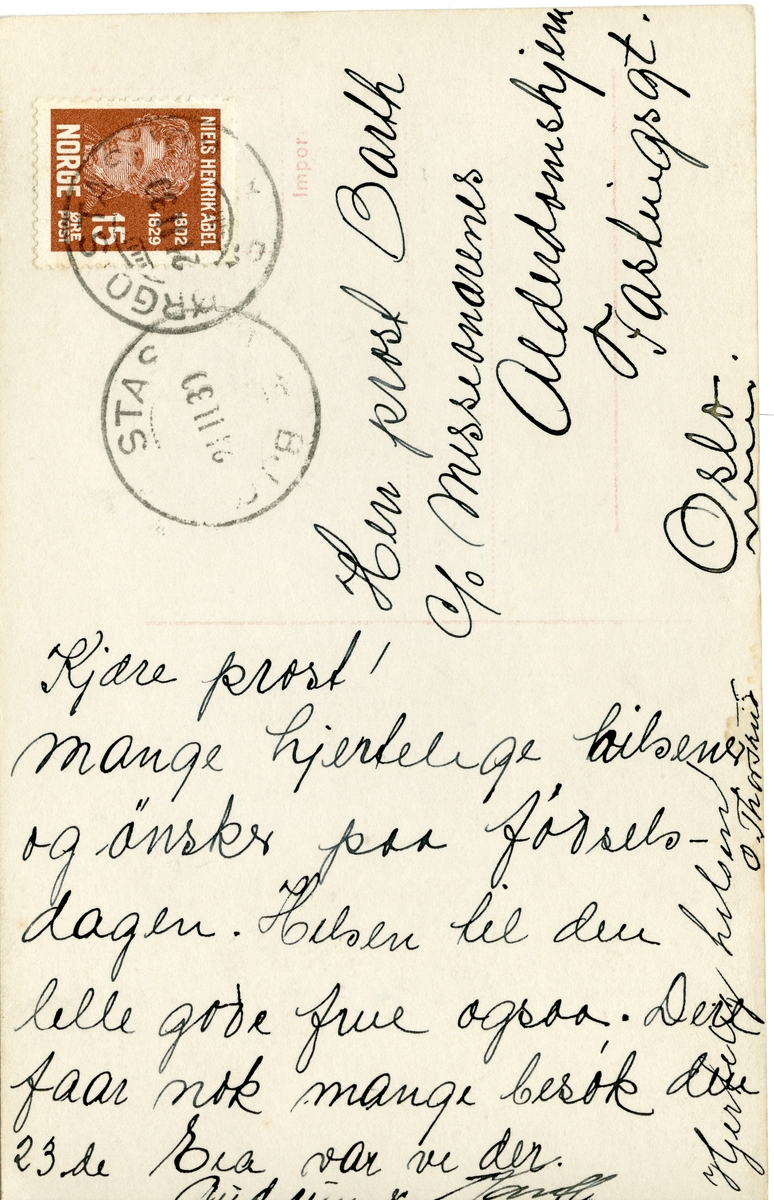 NIELS HENRIK ABEL
1802
1829
15
ØRE
NORGE
POST
Impor
STAS
21.11.30
Herr prost Barth
c/o Missionærenes
Alderdomshjem
Fastingsgt.
Oslo.
Kjære prost!
Mange hjertelige hilsener
og önsker paa födsels-
dagen. Hilsen til den
lille gode frue ogsaa. Dere
faar nok mange besök den
23.de Eia var vi der.
Hjertelig hilsen
O. Thorstrud